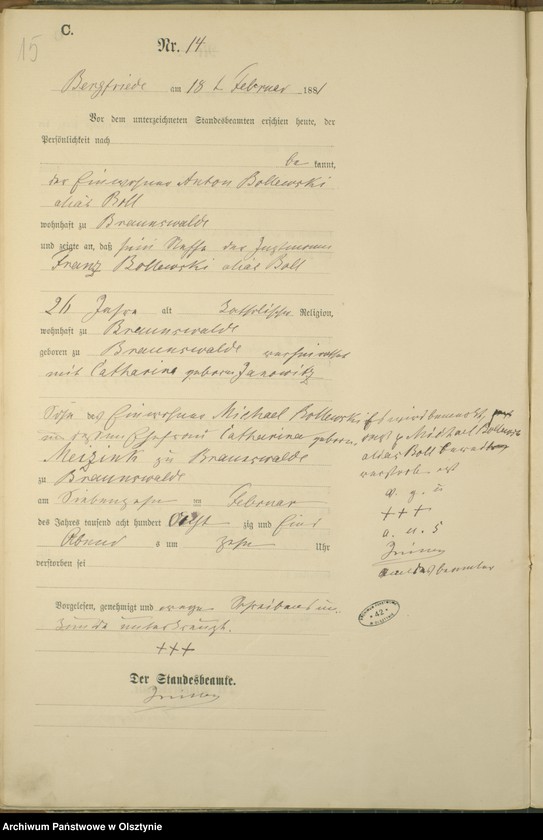 15
C.
Nr. 14
Bergfriede am 18 t Februar 1881
Vor dem unterzeichneten Standesbeamten erschien heute, der
Persönlichkeit nach
be kannt,
der Einwohner Anton Bollewski
alias Boll
wohnhaft zu Braunswalde
und zeigte an, daß sein Neffe der Instmann
Franz Bollewski alias Boll
26 Jahre alt katholischer Religion,
wohnhaft zu Braunswalde
geboren zu Braunswalde verheirathet
mit Catharina geborene Janowitz
Sohn des Einwohners Michael Bollewski
und dessen Ehefrau Catharina geborene
zu Braunswalde
zu Braunswalde
am Siebenzehn ten Februar
des Jahres tausend acht hundert Acht zig und Eins
Abend s um zehn Uhr
verstorben sei
Vorgelesen, genehmigt und wegen Schreibensun-
kunde unterkreuzt.
+++
Der Standesbeamte.
Es wird bemerkt,
Michael Bollewski
alias Boll bereits
verstorben ist
v. g. u
+++
a. u. s
Standesbeamter
42
Archiwum Państwowe w Olsztynie